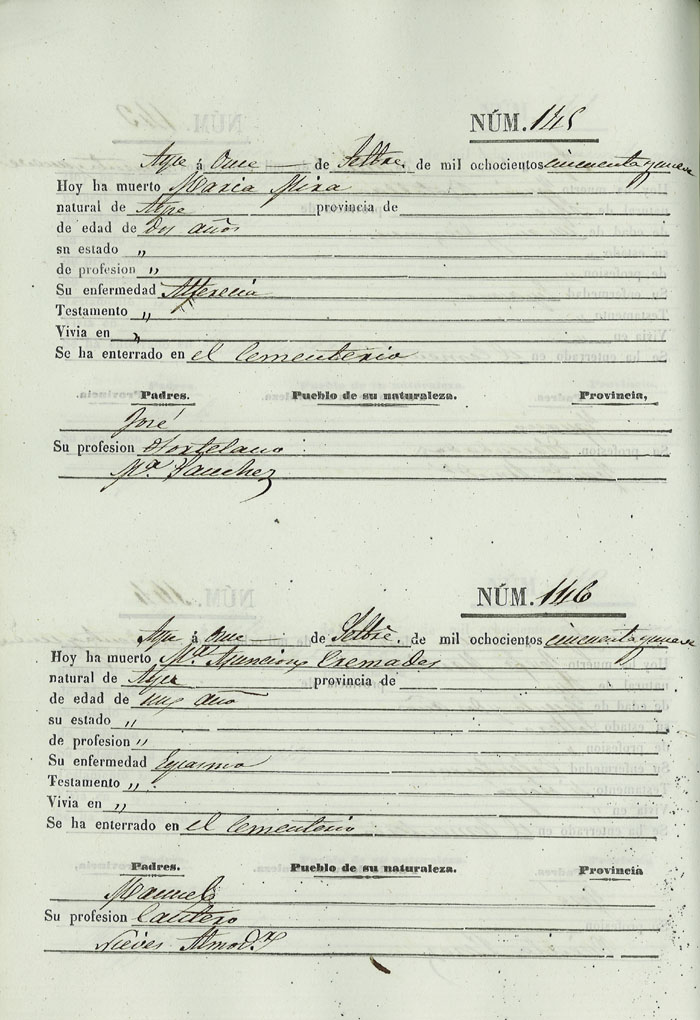 NÚM. 145
Aspe á Once de Setbre. de mil ochocientos cincuenta y nueve
Hoy ha muerto Maria Mira
natural de Aspe provincia de
de edad de Dos años
su estado „
de profesion „
Su enfermedad Alferecia
Testamento „
Vivia en „
Se ha enterrado en el Cementerio
Padres. Pueblo de su naturaleza. Provincia,
José
Su profesion Hortelano
Mª. Sanchez
NÚM. 146
Aspe á Once de Setbre. de mil ochocientos cincuenta y nueve
Hoy ha muerto Mª Asuncion Cremades
natural de Aspe provincia de
de edad de un año
su estado „
de profesion „
Su enfermedad Espasmo
Testamento „
Vivia en „
Se ha enterrado en el Cementerio
Padres. Pueblo de su naturaleza. Provincia
Manuel
Su profesion Cantero
Nieves